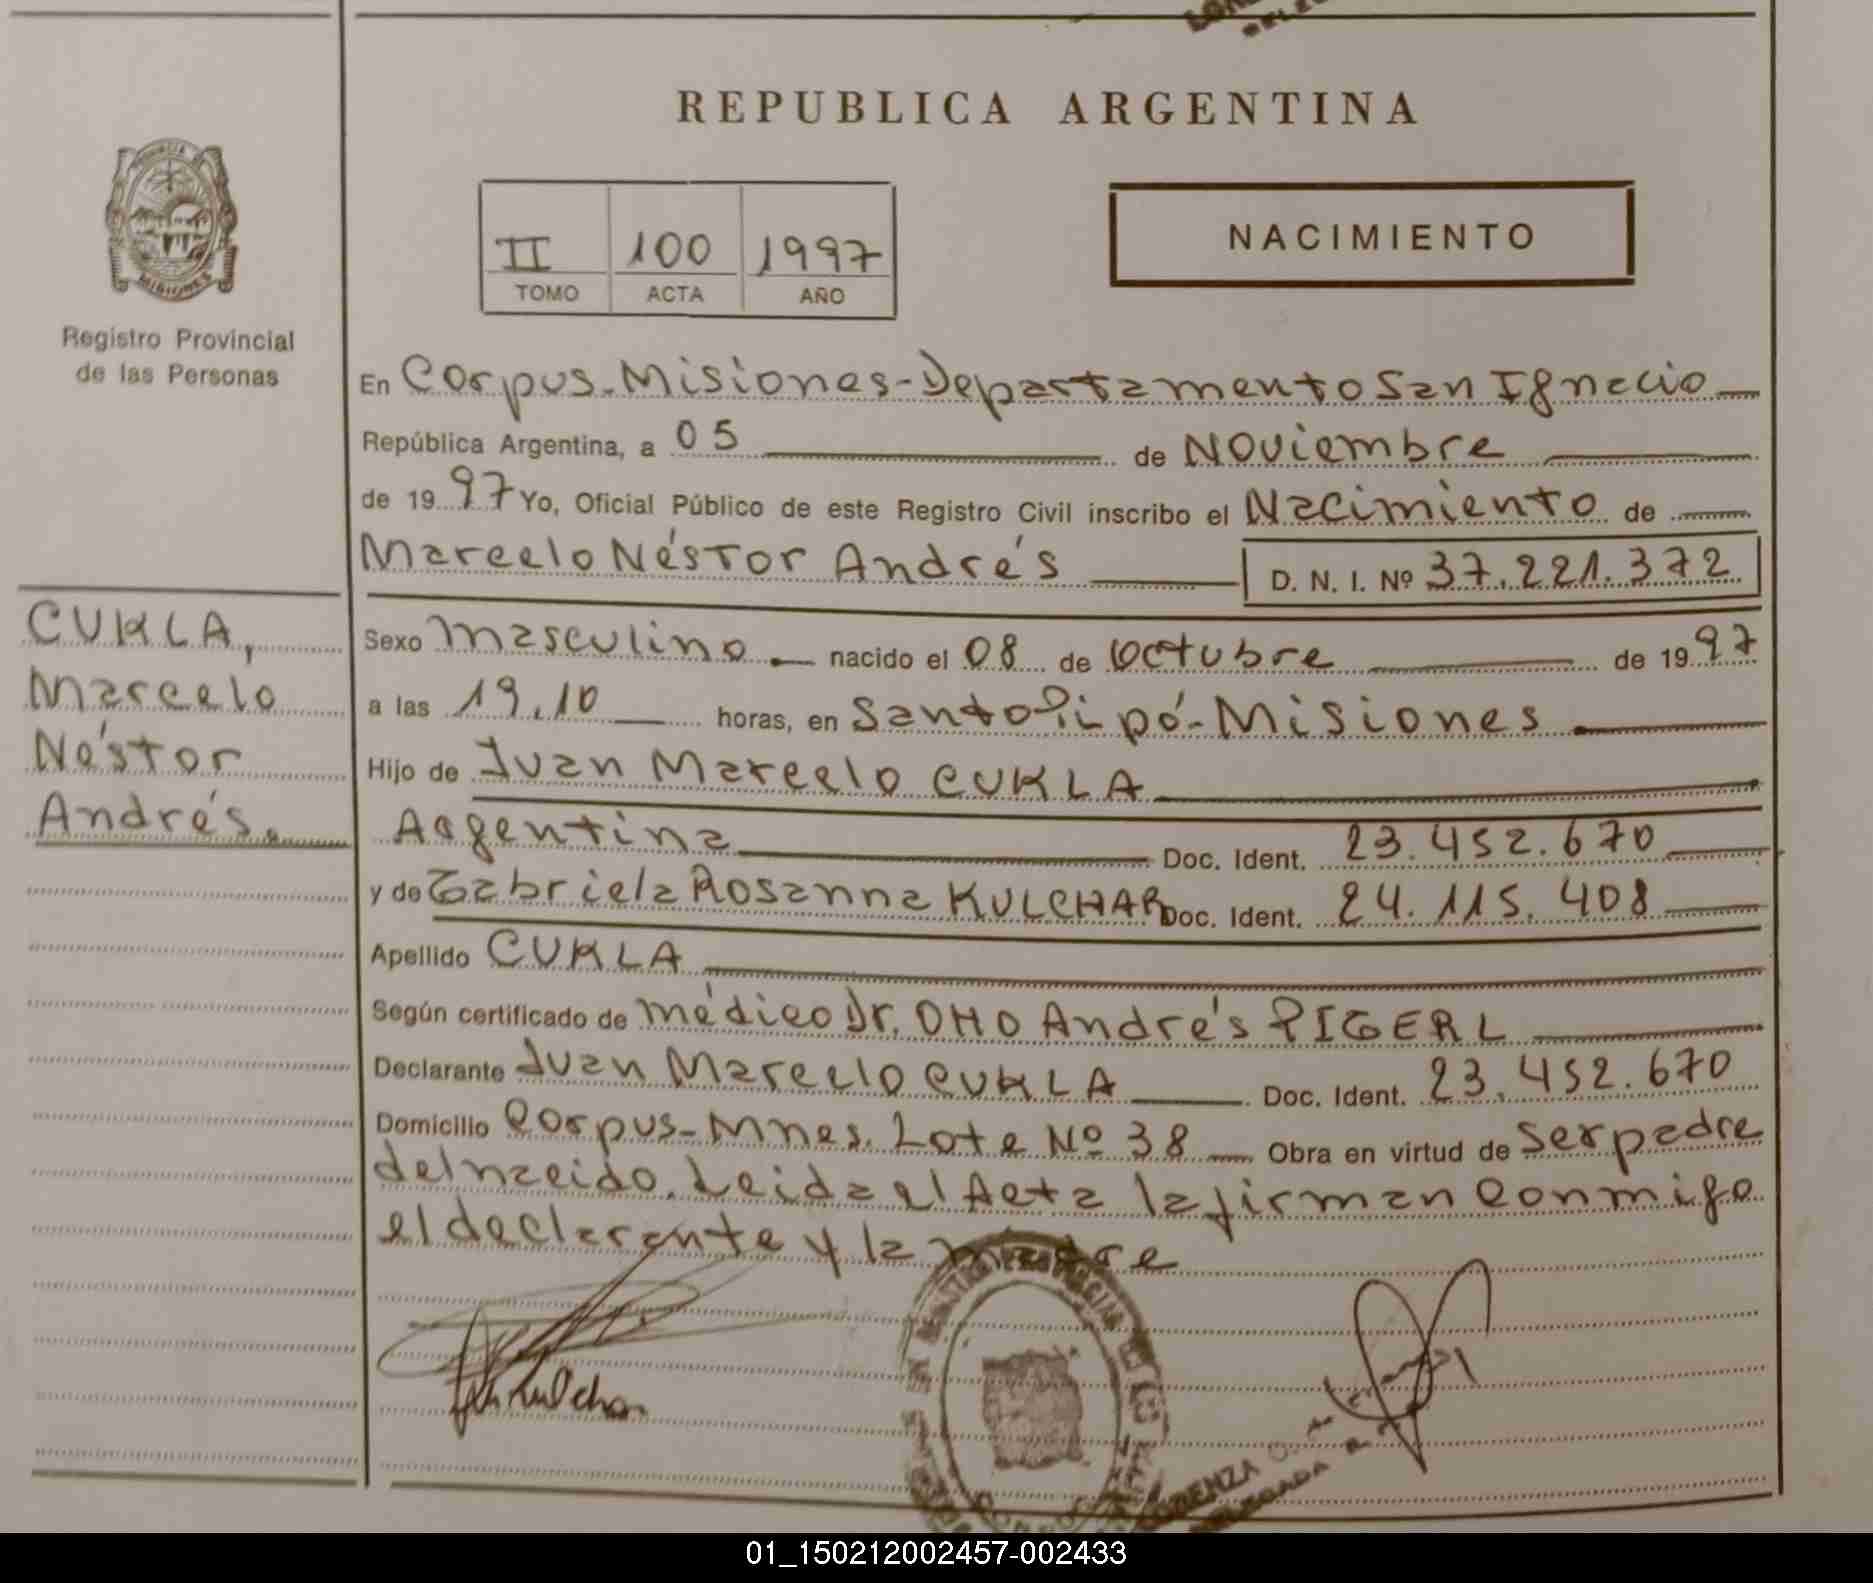 REPUBLICA ARGENTINA
PROVINCIA DE
MISIONES
Registro Provincial
de las Personas
II 100 1997
TOMO ACTA AÑO
NACIMIENTO
En Corpus-Misiones-Departamento San Ignacio
República Argentina, a 05 de Noviembre
de 1997 Yo, Oficial Público de este Registro Civil inscribo el Nacimiento de
Marcelo Néstor Andrés D. N. I. Nº 37.221.372
CUKLA,
Marcelo
Néstor
Andrés.
Sexo masculino nacido el 08 de Octubre de 1997
a las 19.10 horas, en Santo Pipó-Misiones
Hijo de Juan Marcelo CUKLA
Argentina Doc. Ident. 23.452.670
y de Gabriela Rosanna KULCHAR Doc. Ident. 24.115.408
Apellido CUKLA
Según certificado de médico Dr. OHO Andrés PIGERL
Declarante Juan Marcelo CUKLA Doc. Ident. 23.452.670
Domicilio Corpus-Mnes. Lote Nº 38 Obra en virtud de ser padre
del nacido. Leida el Acta la firman conmigo
el declarante y la madre
01_150212002457-002433